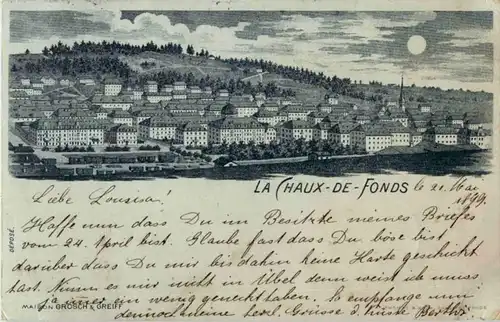 LA CHAUX-DE-FONDS le 21. Mai 1899.
Liebe Louisa!
Hoffe nun dass Du im Besitze meines Briefes
vom 24. April bist. Glaube fast dass Du böse bist
darüber dass Du mir bis dahin keine Karte geschickt
hast. Nimm es mir nicht in Übel denn weist ich muss
ja immer ein wenig geneckt haben. So empfange nun
dennoch meine herzl. Grüsse & Küsse Bertha
DÉPOSÉ.
MAISON GROSCH & GREIFF